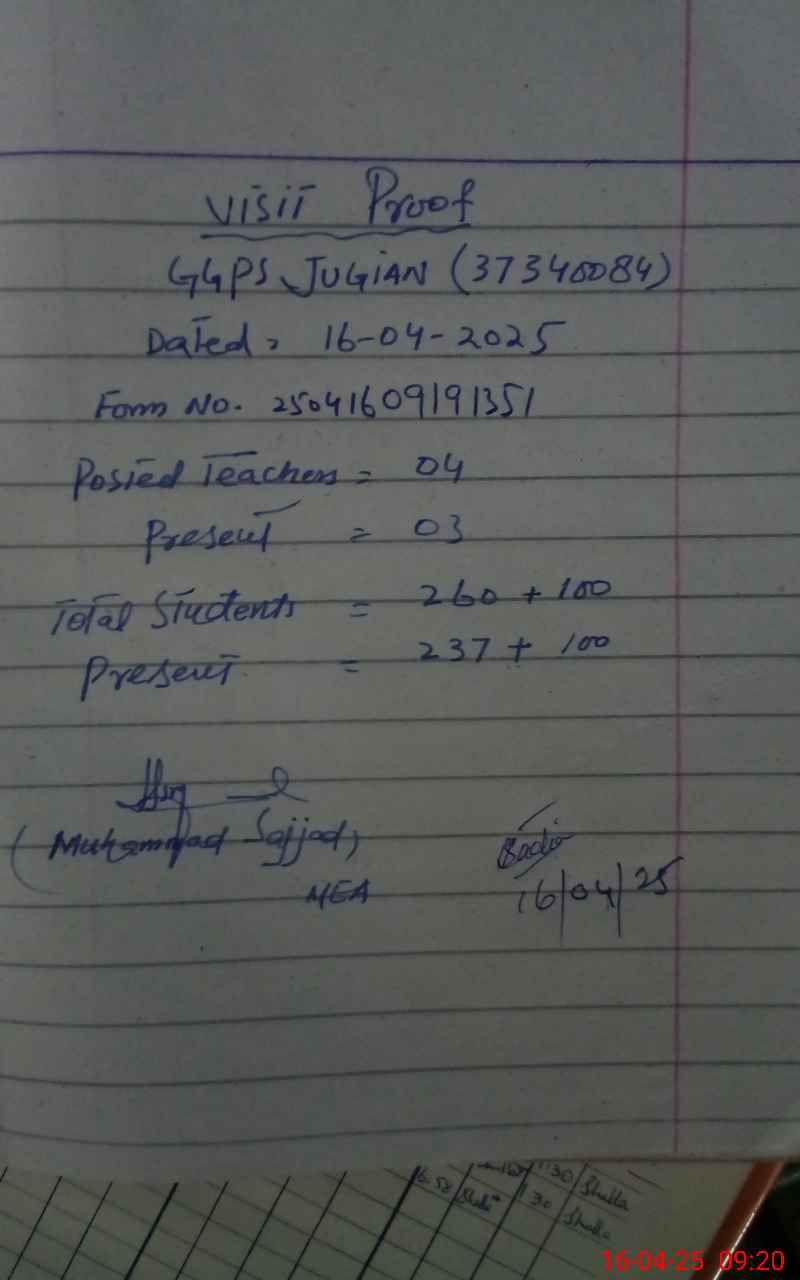 Visit Proof
GGPS JUGIAN (37340084)
Dated = 16-04-2025
Form No. 25041609191351
Posted Teachers = 04
Present = 03
Total Students = 260 + 100
Present = 237 + 100
(Muhammad Sajjad)
MEA
Sadia
16/04/25
6.58 1 30 Shella
1 30 Shella
16-04-25 09:20